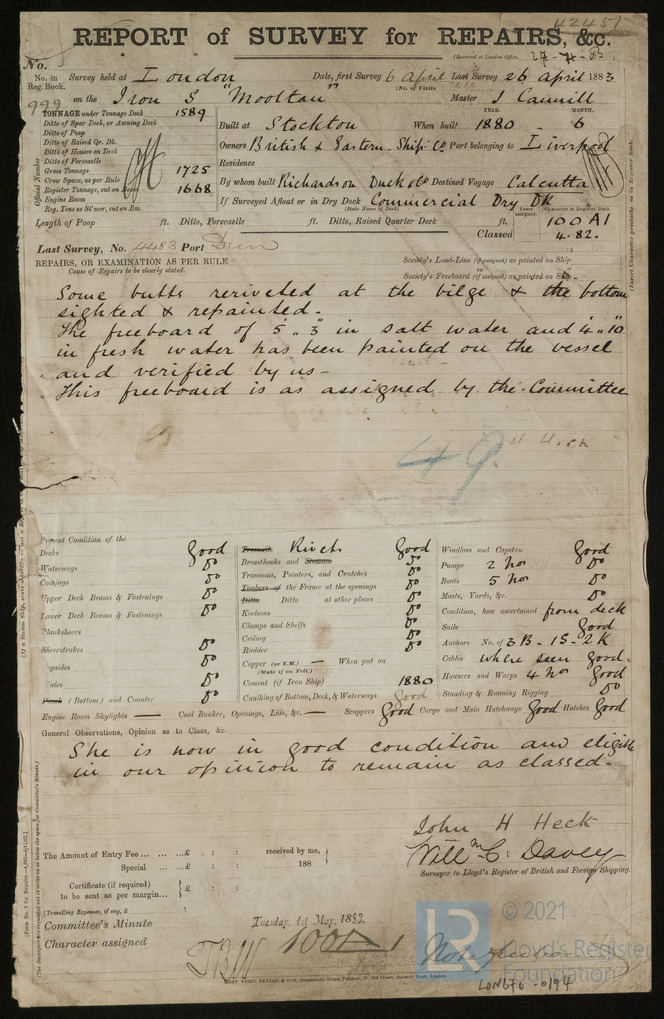 42451
REPORT of SURVEY for REPAIRS, &c.
(Received at London Office,
No.
No. in Reg. Book. Survey held at London Date, first Survey 6 April Last Survey 26 April 1883
(No. of Visits
999 on the Iron S "Mooltan" Master J
TONNAGE under Tonnage Deck 1589
Ditto of Spar Deck, or Awning Deck
Ditto of Poop
Ditto of Raised Qr. Dk.
Ditto of Houses on Deck
Ditto of Forecastle
Gross Tonnage 1725
Crew Space, as per Rule
Register Tonnage, cut on Beam 1668
Engine Room
Reg. Tons as St'mer, cut on Bm.
Official Number
YEAR. MONTH.
Built at Stockton When built 1880 - 6
Owners British & Eastern Ship. Co Port belonging to Liverpool
Residence
By whom built Richardson Duck & Co Destined Voyage Calcutta
If Surveyed Afloat or in Dry Dock Commercial Dry Dk
(State Name of Dock)
Years assigned. Character in Register Book.
Length of Poop ft. Ditto, Forecastle ft. Ditto, Raised Quarter Deck ft. 100 A1
Classed 4.82.
Last Survey, No. 4483 Port
REPAIRS, OR EXAMINATION AS PER RULE
Cause of Repairs to be clearly stated.
Society's Load-Line (if assigned) as painted on Ship
Society's Freeboard (if assigned) as painted on Ship
Some butts reriveted at the bilge & the bottom
sighted & repainted.
The freeboard of 5".3 in salt water and 4".10
in fresh water has been painted on the vessel
and verified by us -
This freeboard is as assigned by the Committee
49
Heck
Present Condition of the
Decks Good
Waterways Do
Coamings Do
Upper Deck Beams & Fastenings Do
Lower Deck Beams & Fastenings Do
Planksheers
Sheerstrakes Do
Topsides Do
Wales Do
Plank (Bottom) and Counter Do
Engine Room Skylights — Coal Bunker, Openings, Lids, &c. — Scuppers Good Cargo and Main Hatchways Good Hatches Good
Treenails Rivets Good
Breasthooks and Stemson Do
Transoms, Pointers, and Crutches Do
Timbers of the Frame at the openings Do
Ditto Ditto at other places Do
Keelsons Do
Clamps and Shelfs Do
Ceiling Do
Rudder Do
Copper (or Y.M.) — When put on
(State if on Felt)
Cement (if Iron Ship) 1880
Caulking of Bottom, Deck, & Waterways Good
Windlass and Capstan Good
Pumps 2 No Do
Boats 5 No Do
Masts, Yards, &c. Do
Condition, how ascertained from deck
Sails Good
Anchors No. of 3 B - 1 S - 2 K
Cables where seen Good.
Hawsers and Warps 4 No Good
Standing & Running Rigging Do
General Observations, Opinion as to Class, &c.
She is now in good condition and eligible
in our opinion to remain as classed.
John H Heck
Will m C. Davey
Surveyor to Lloyd's Register of British and Foreign Shipping.
The Amount of Entry Fee ... £ : : received by me,
Special ... £ : : 188
Certificate (if required) to be sent as per margin... £ : :
(Travelling Expenses, if any, £ )
Committee's Minute Tuesday, 1st May, 1883.
Character assigned 100A1
LON670-0194
© 2021
Lloyd's Register
Foundation
LR